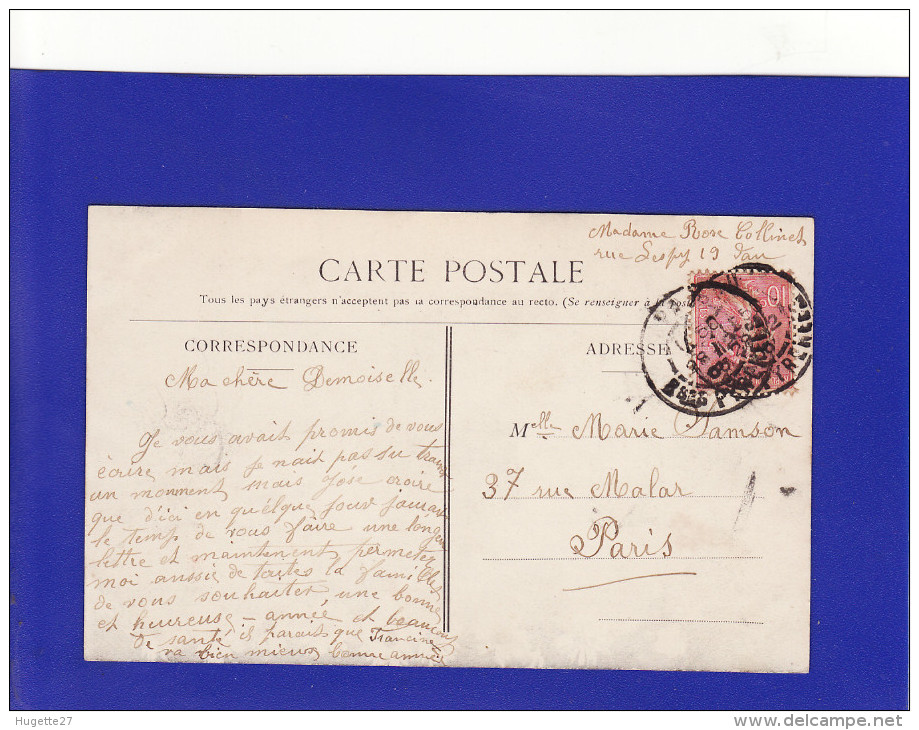 Madame Rose Collinet
rue Lespy 19 Pau
CARTE POSTALE
Tous les pays étrangers n'acceptent pas la correspondance au recto. (Se renseigner à la Poste
CORRESPONDANCE
ADRESSE
Ma chère Demoiselle.
Je vous avait promis de vous
écrire mais Je nait pas pu
un monment mais J'ose croire
que d'ici en quelque Jour J'aurai
le temp de vous faire une longue
lettre et maintenent, permetez
moi aussie de toutes la famille
de vous souhaiter une bonne
et heureuse - année et beaucoup
De santé il parait que Francine
va bien mieux bonne année
Melle Marie Samson
37 rue Malar
Paris
10
Hugette27
www.delcampe.net